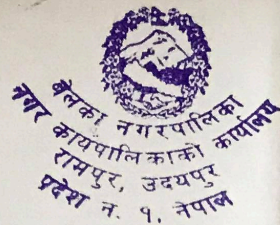 बेलका नगरपालिका
नगर कार्यपालिकाको कार्यालय
रामपुर, उदयपुर
प्रदेश न. १, नेपाल